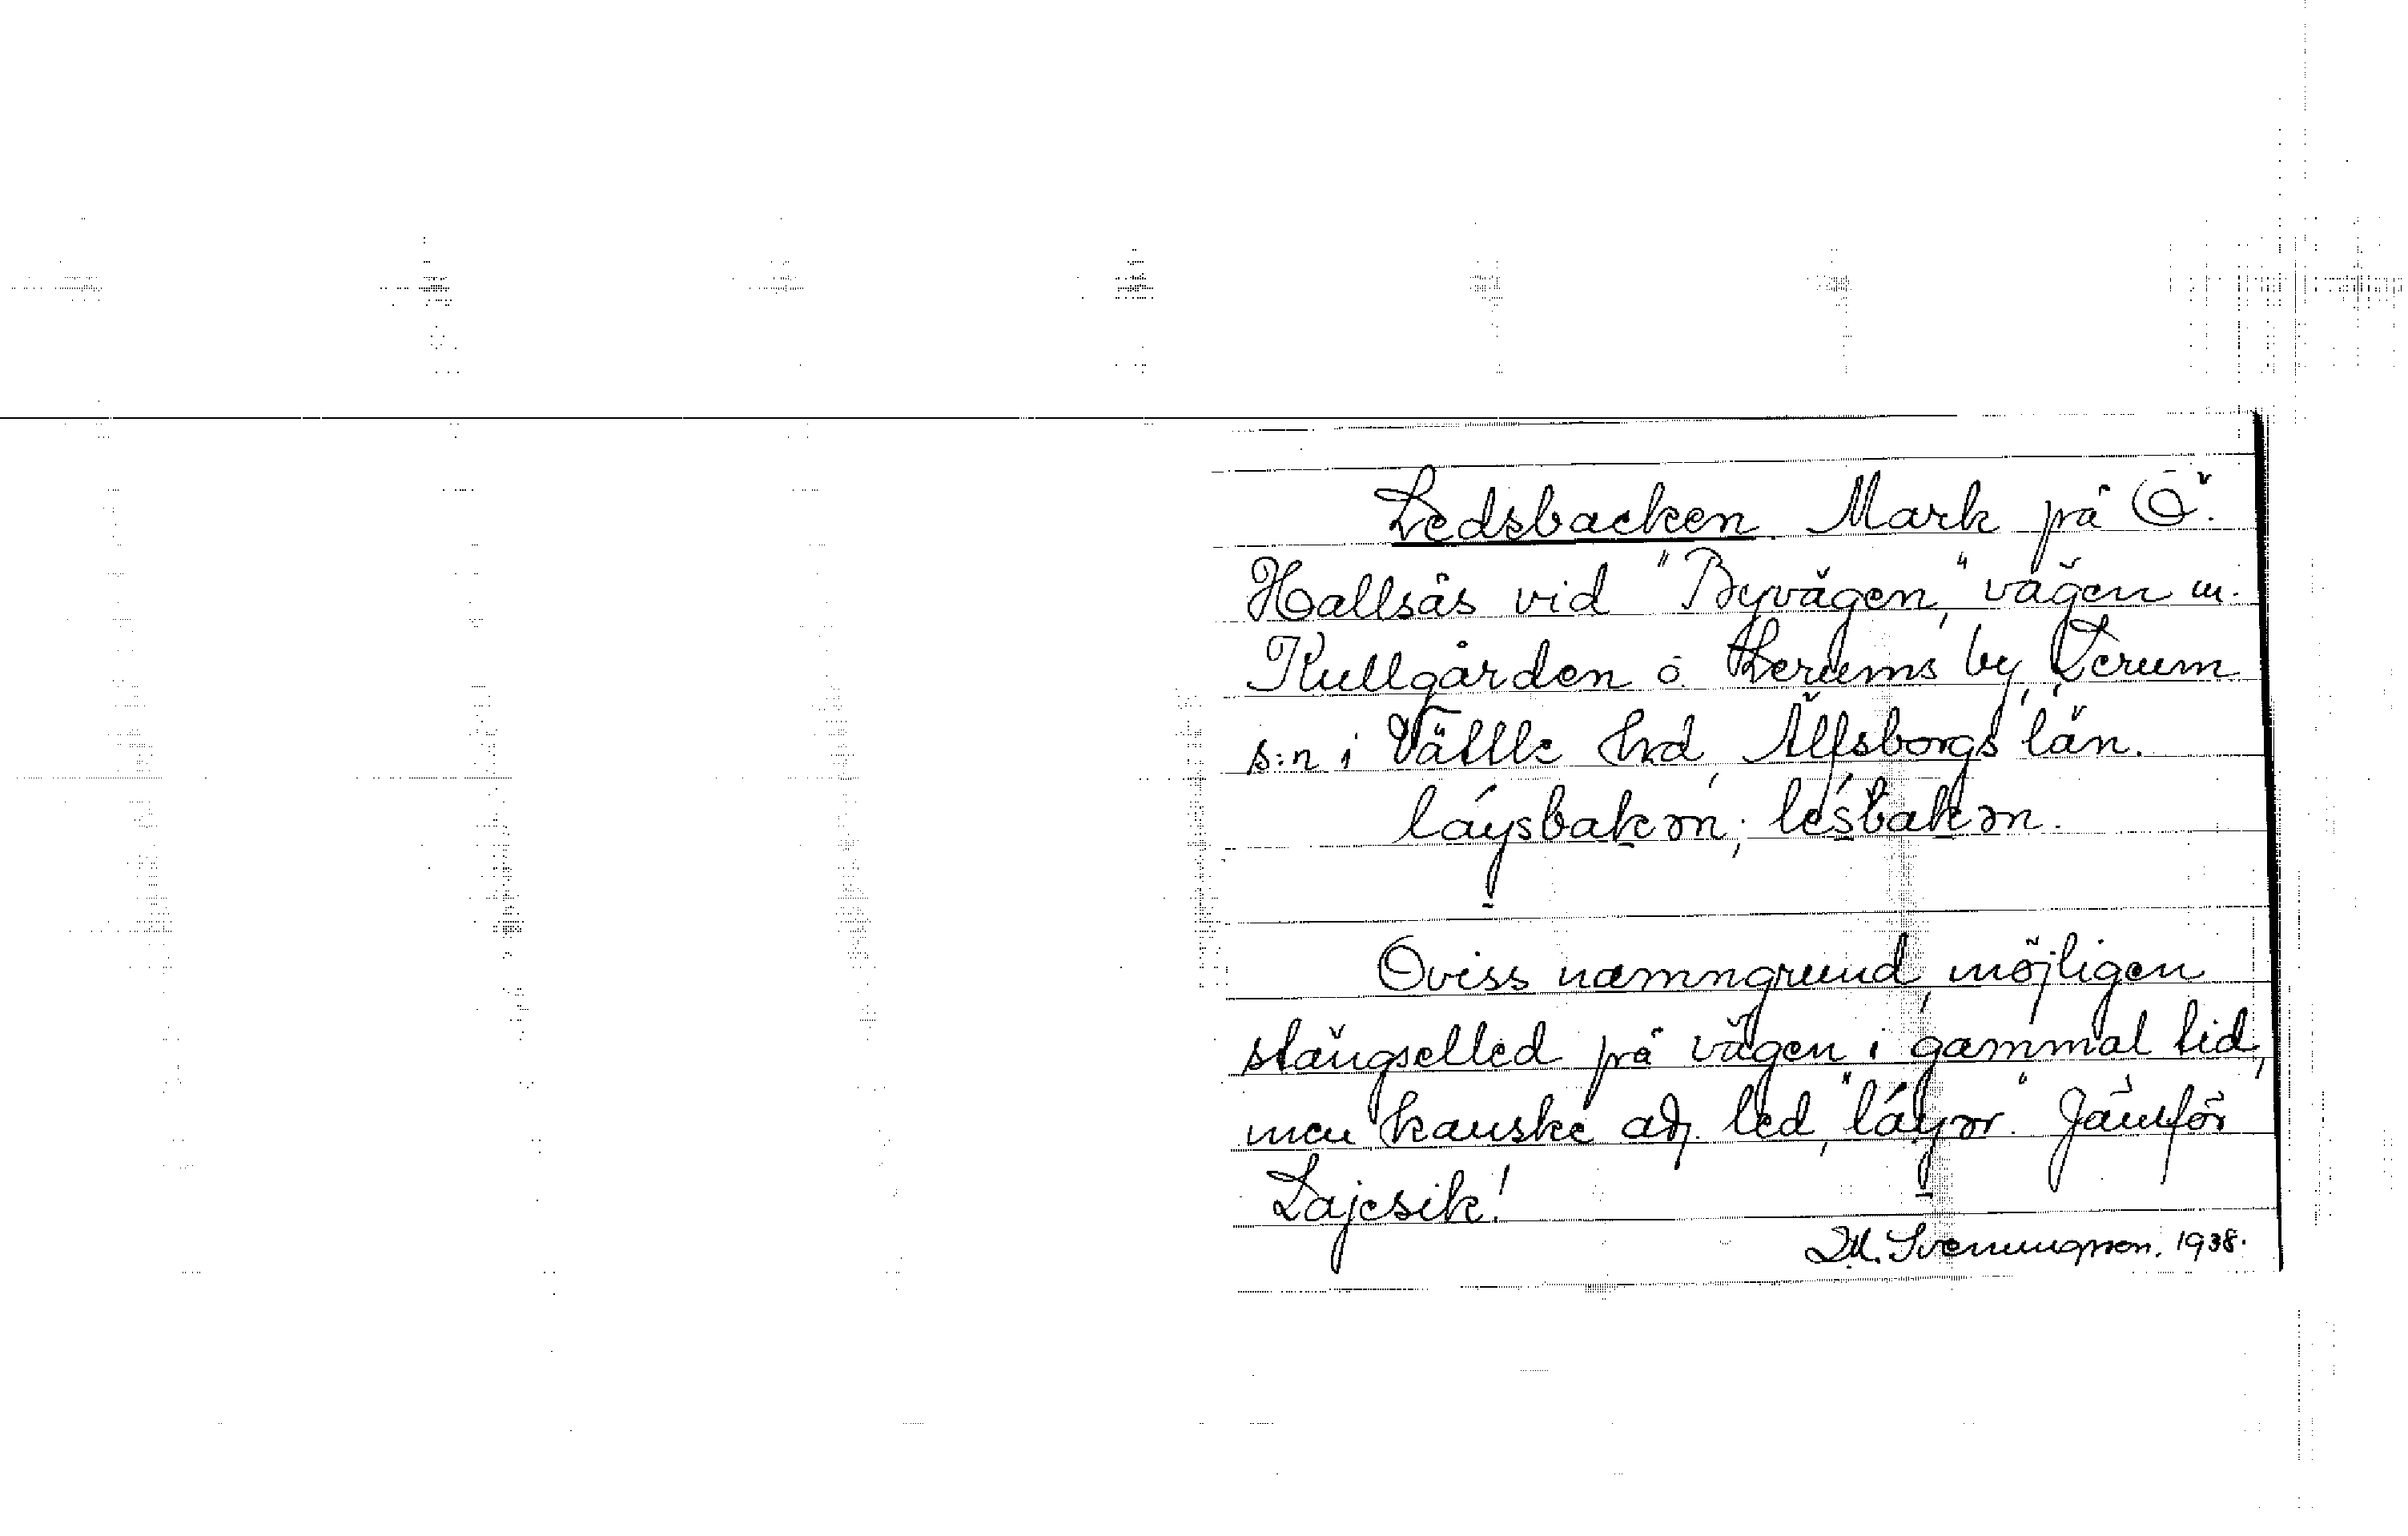 Ledsbacken. Mark på Ö.
Hallsås vid "Byvägen," vägen m.
Kullgården o. Lerums by, Lerum
s:n i Vättle hrd, Älfsborgs län.
láysbakən; lésbakən.
Oviss namngrund, möjligen
stängselled på vägen i gammal tid,
men kanske adj. led, "láyər". Jämför
Lajesik!
Svenungsson. 1938.